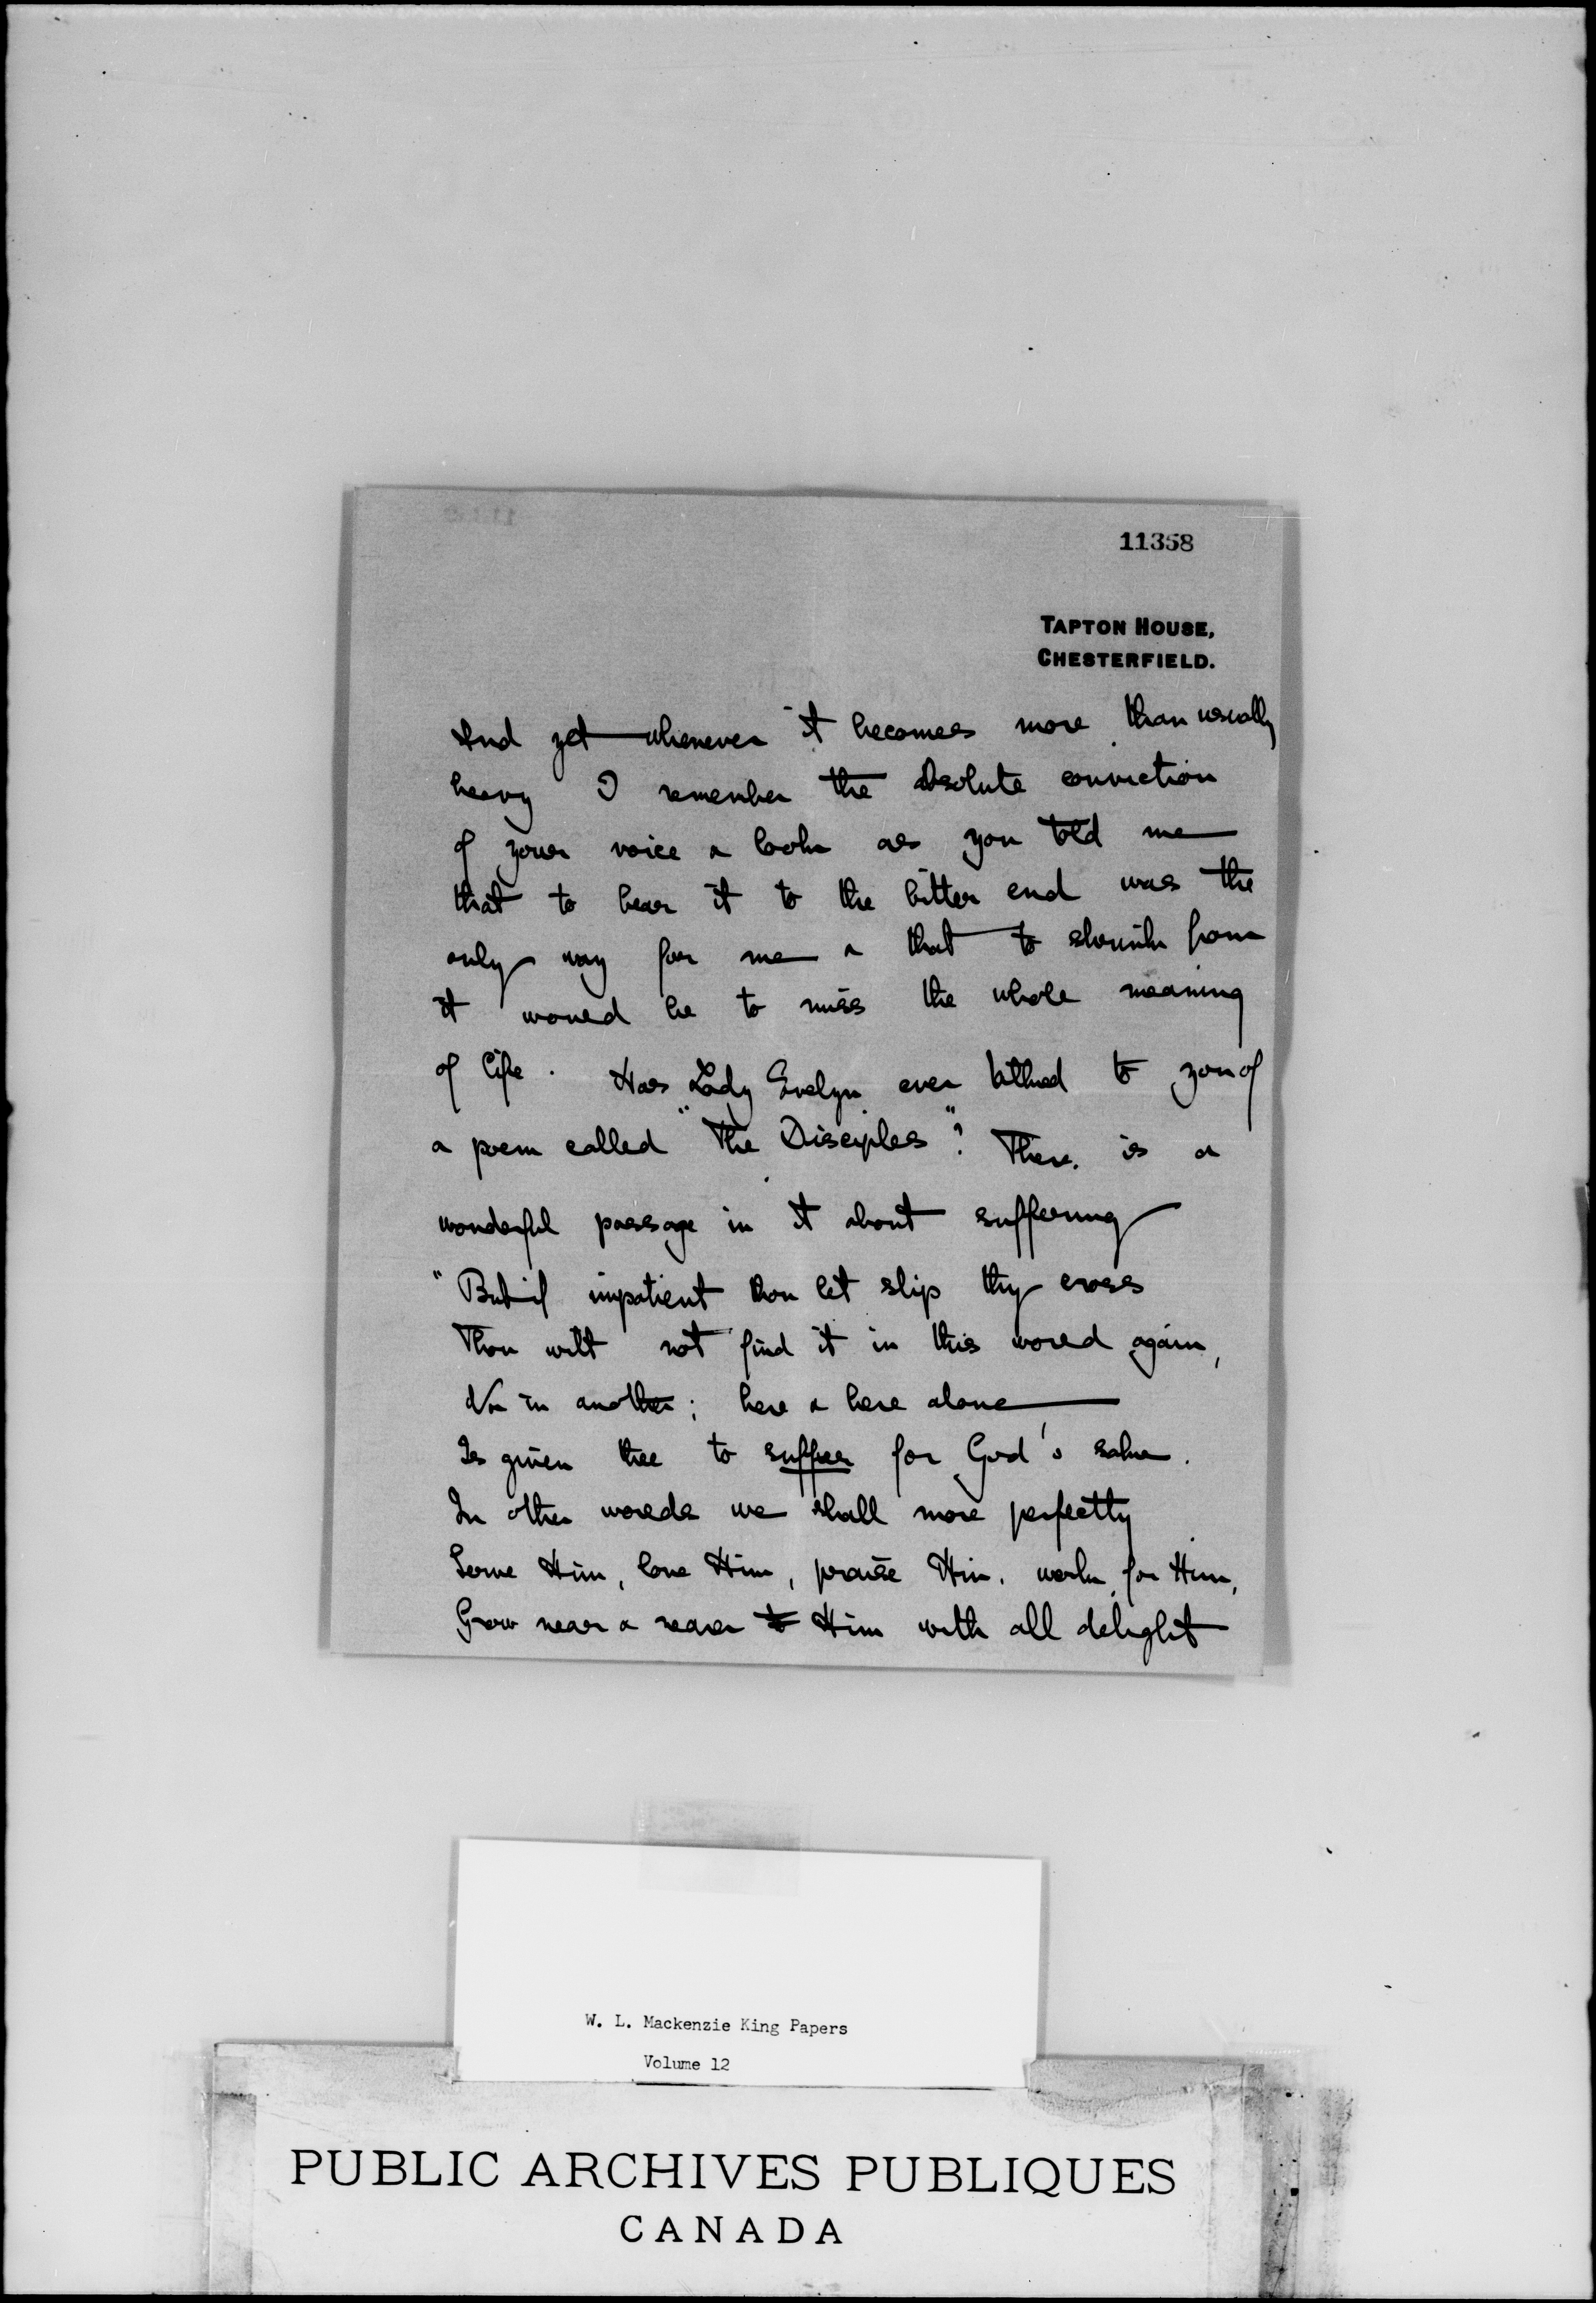 11358
TAPTON HOUSE,
CHESTERFIELD.
And yet whenever it becomes more than usually
heavy I remember the absolute conviction
of your voice & look as you told me
that to bear it to the bitter end was the
only way for me & that to shrink from
it would be to miss the whole meaning
of life. Has Lady Evelyn ever talked to you of
a poem called "The Disciples"? There is a
wonderful passage in it about suffering
"But if impatient thou let slip thy cross
Thou wilt not find it in this world again,
Nor in another; here & here alone
Is given thee to suffer for God's sake.
In other worlds we shall more perfectly
Serve Him, love Him, praise Him, work for Him,
Grow near & nearer to Him with all delight
W. L. Mackenzie King Papers
Volume 12
PUBLIC ARCHIVES PUBLIQUES
CANADA